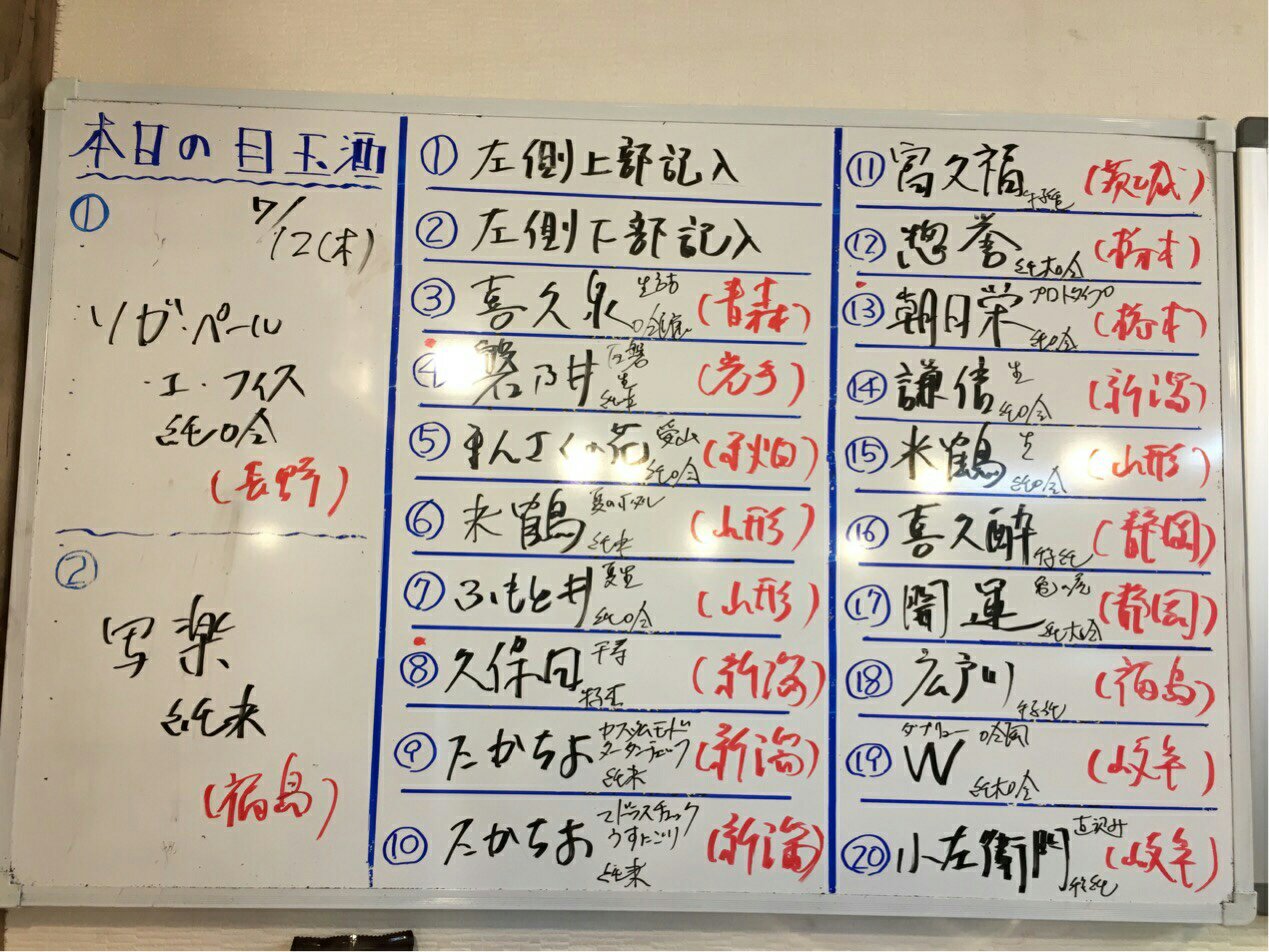 本日の目玉酒
①
7/12(木)
ソガ・ペール
エ・フィス
純吟
(長野)
②
写楽
純米
(福島)
① 左側上部記入
② 左側下部記入
③ 喜久泉 吟冠 (青森)
④ 磐乃井 生 (岩手)
⑤ まんさくの花 愛山 純吟 (秋田)
⑥ 米鶴 純米 (山形)
⑦ ふもと井 夏生 純吟 (山形)
⑧ 久保田 千寿 (新潟)
⑨ たかちよ カスタムモード
タータンチェック
純米 (新潟)
⑩ たかちよ マドラスチェック
うすにごり
純米 (新潟)
⑪ 富久福 (茨城)
⑫ 惣誉 純大吟 (栃木)
⑬ 朝日栄 プロトタイプ 純吟 (栃木)
⑭ 謙信 生 純吟 (新潟)
⑮ 米鶴 生 純吟 (山形)
⑯ 喜久酔 特純 (静岡)
⑰ 開運 純大吟 (静岡)
⑱ 広戸川 特純 (福島)
⑲ W ダブリュー 純大吟 (岐阜)
⑳ 小左衛門 直汲み 特純 (岐阜)